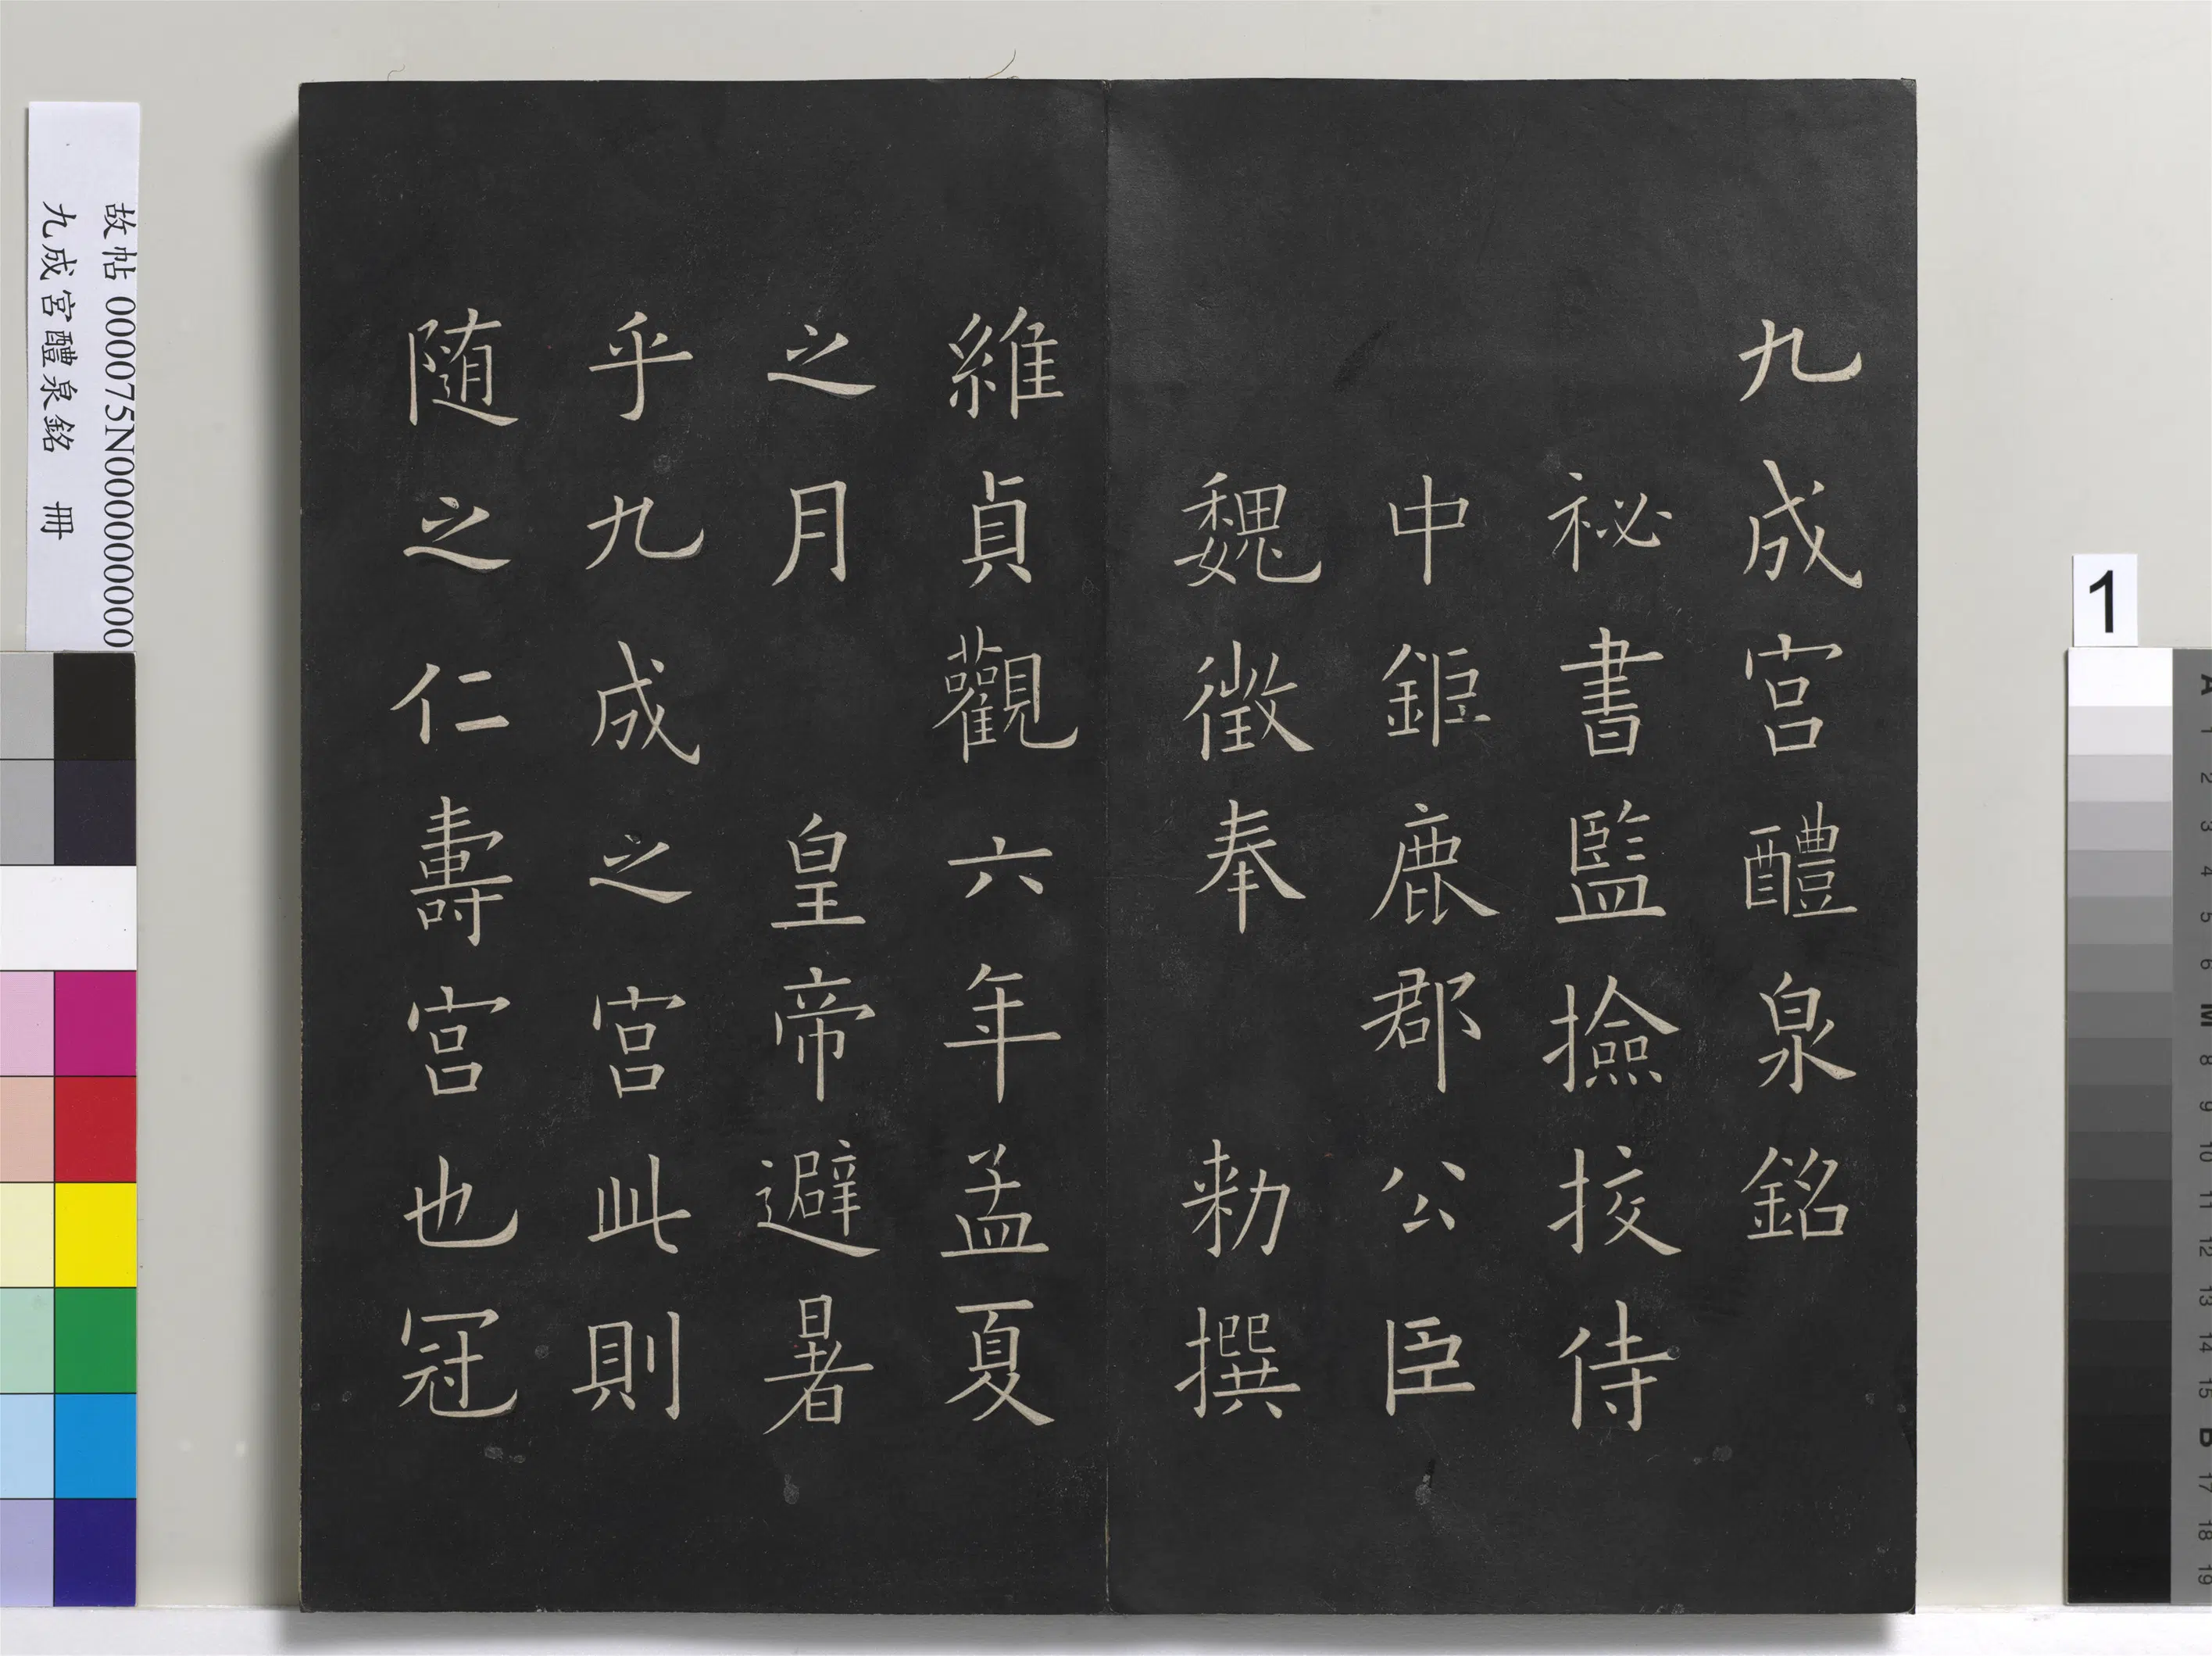 九成宮醴泉銘
祕書監撿挍侍
中鉅鹿郡公臣
魏徵奉 勑撰
維貞觀六年孟夏
之月 皇帝避暑
乎九成之宮此則
随之仁壽宮也冠
故帖 000075N000000000
九成宮醴泉銘 冊
1
A
1
2
3
4
5
6
M
8
9
10
11
12
13
14
15
B
17
18
19